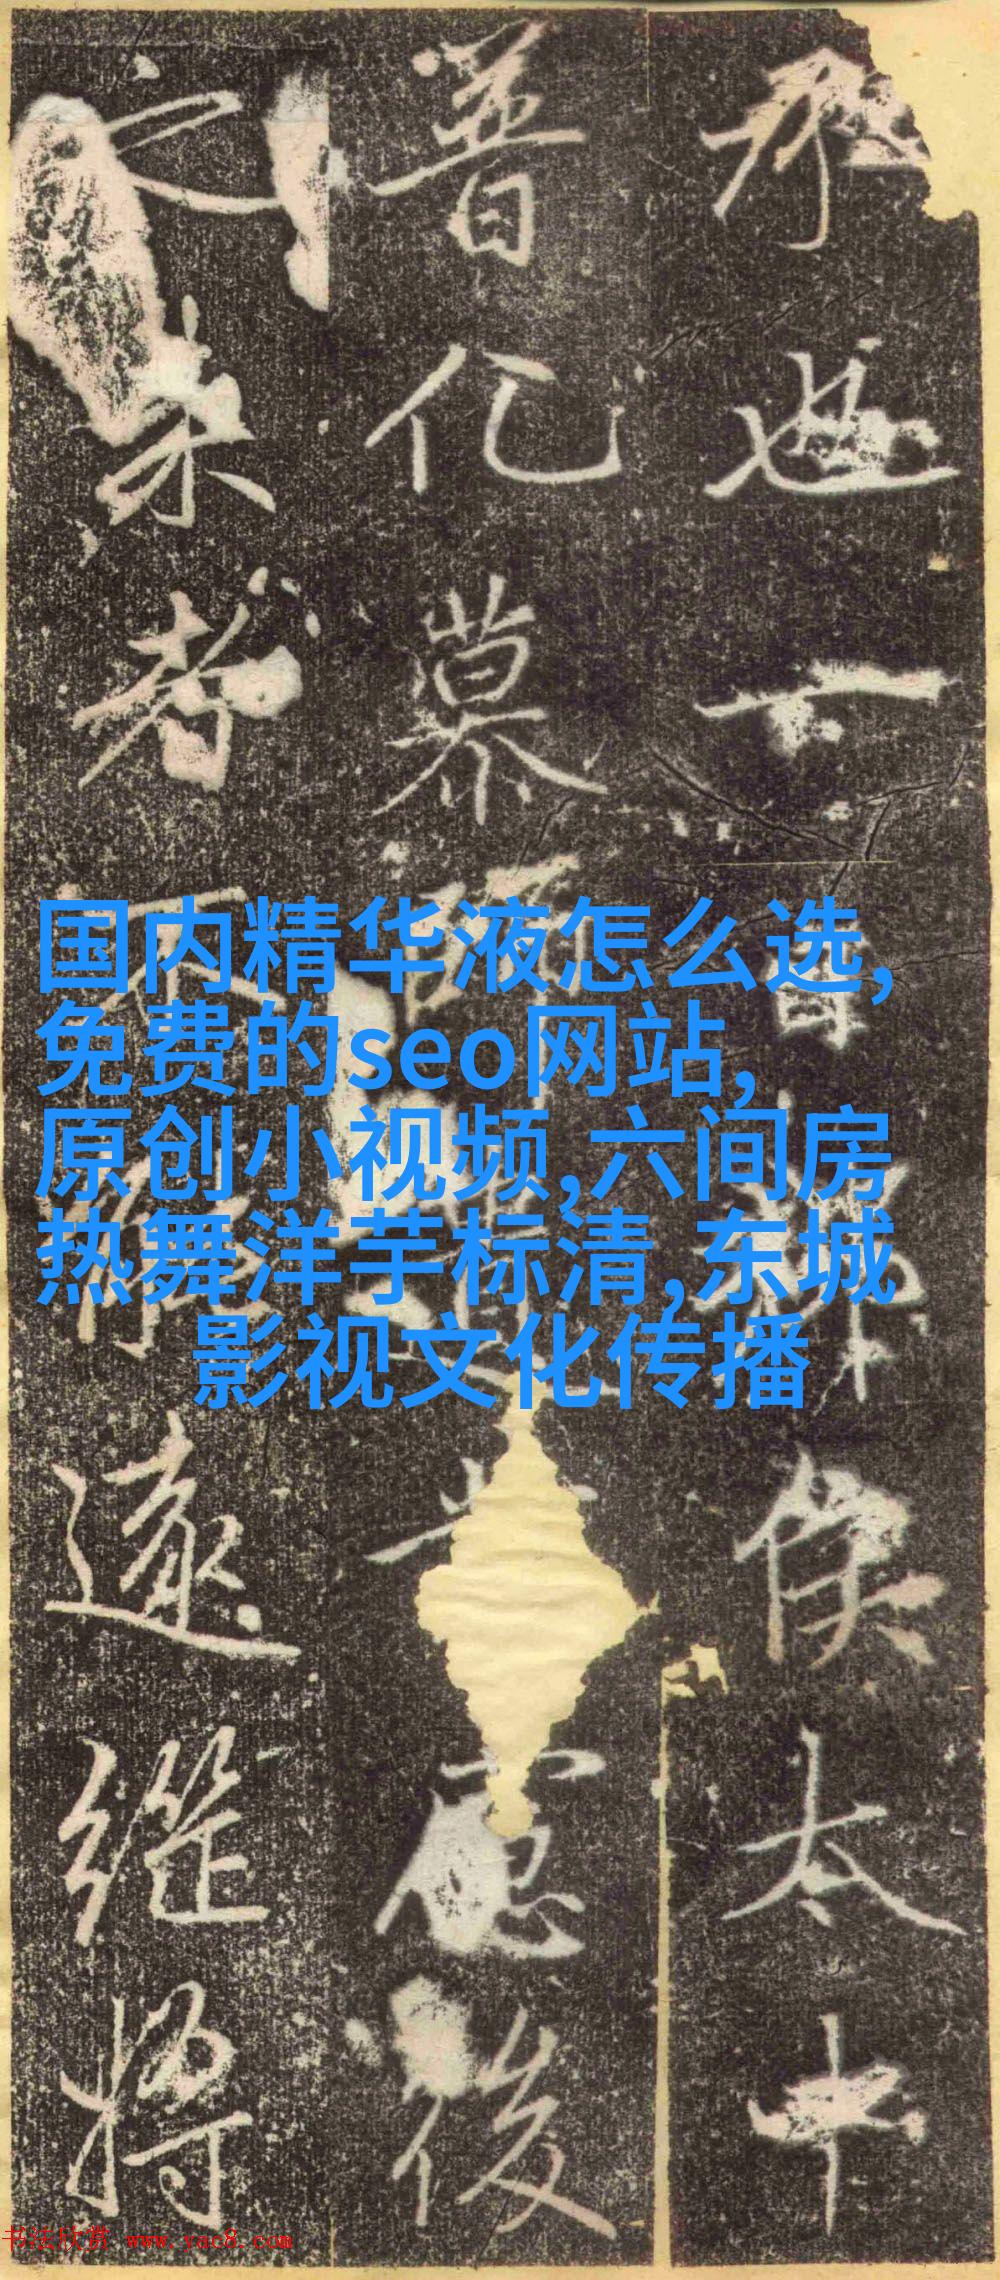 也一侯太中
普化慕後
未者不遠繼將
国内精华液怎么选,
免费的seo网站,
原创小视频,六间房
热舞洋芋标清,东城
影视文化传播
书法欣赏 www.yac8.com